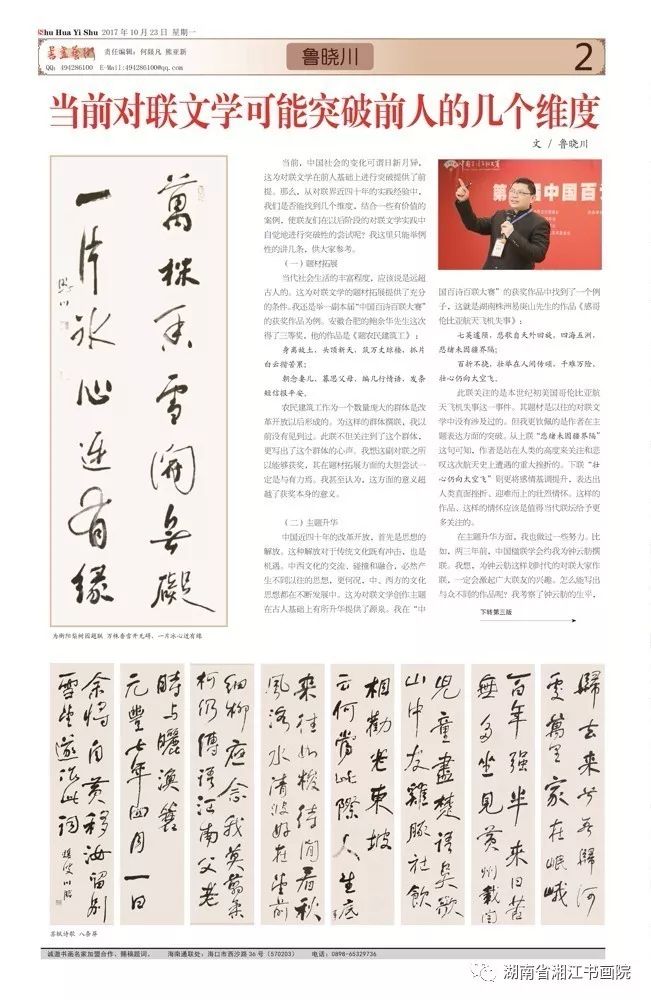 Shu Hua Yi Shu 2017年10月23日 星期一
书画艺术 责任编辑：何颐凡 熊亚新
QQ：494286100 E-Mail:494286100@qq.com
鲁晓川
2
当前对联文学可能突破前人的几个维度
文 / 鲁晓川
当前，中国社会的变化可谓日新月异，
这为对联文学在前人基础上进行突破提供了前
提。那么，从对联界近四十年的实践经验中，
我们是否能找到几个维度，结合一些有价值的
案例，使联友们在以后阶段的对联文学实践中
自觉地进行突破性的尝试呢？我这里只能举例
性的讲几条，供大家参考。
（一）题材拓展
当代社会生活的丰富程度，应该说是远超
古人的。这为对联文学的题材拓展提供了充分
的条件。我还是举一副本届“中国百诗百联大赛”
的获奖作品为例。安徽合肥的鲍余华先生这次
得了三等奖，他的作品是《题农民建筑工》：
身离故土，头顶新天，筑万丈琼楼，抓片
白云揩苦累；
朝念妻儿，暮思父母，编几行情语，发条
短信报平安。
农民建筑工作为一个数量庞大的群体是改
革开放以后形成的。为这样的群体撰联，我以
前没有见到过。此联不但关注到了这个群体，
更写出了这个群体的心声。我想这副对联之所
以能够获奖，其在题材拓展方面的大胆尝试一
定是与有力焉。我甚至认为，这方面的意义超
越了获奖本身的意义。
（二）主题升华
中国近四十年的改革开放，首先是思想的
解放。这种解放对于传统文化既有冲击，也是
机遇。中西文化的交流、碰撞和融合，必然产
生不同以往的思想，更何况，中、西方的文化
思想都在不断发展中。这为对联文学创作主题
在古人基础上有所升华提供了源泉。我在“中
国百诗百联大赛”的获奖作品中找到了一个例
子，这就是湖南株洲易庚山先生的作品《感哥
伦比亚航天飞机失事》：
七英遽陨，悲歌自天外回旋，四海五洲，
悲绪未因疆界隔；
百折不挠，壮举在人间传颂，千难万险，
壮心仍向太空飞。
此联关注的是本世纪初美国哥伦比亚航
天飞机失事这一事件。其题材是以往的对联文
学中没有涉及过的。但我更钦佩的是作者在主
题表达方面的突破。从上联“悲绪未因疆界隔”
这句可知，作者是站在人类的高度来关注和悲
叹这次航天史上遭遇的重大挫折的。下联“壮
心仍向太空飞”则更将感情基调提升，表达出
人类直面挫折、迎难而上的壮烈情怀。这样的
作品、这样的情怀应该是值得当代联坛给予更
多关注的。
在主题升华方面，我也做过一些努力。比
如，两三年前，中国楹联学会约我为钟云舫撰
联。我想，为钟云舫这样划时代的对联大家作
联，一定会激起广大联友的兴趣。怎么能写出
与众不同的作品呢？我考察了钟云舫的生平，
下转第三版
萬株香雪開無礙
一片冰心近有緣
为衡阳梨树园题联 万株香雪开无碍，一片冰心近有缘
歸去來兮吾歸何
處萬里家在岷峨
百年强半來日苦
無多坐見黄州載閏
兒童盡楚語吴歌
山中友雞豚社飲
相勸老東坡
云何當此際人生底
來往如梭待閒看秋
風洛水清波好在堂前
細柳應念我莫翦柔
柯仍傳語江南父老
時与曬漁蓑
元豐七年四月一日
余将自黄移汝留别
雪堂遂作此詞
苏轼诗歌 八条屏
诚邀书画名家加盟合作、赐稿题词。 海南通联处：海口市西沙路36号（570203） 电话：0898-65329736
湖南省湘江书画院